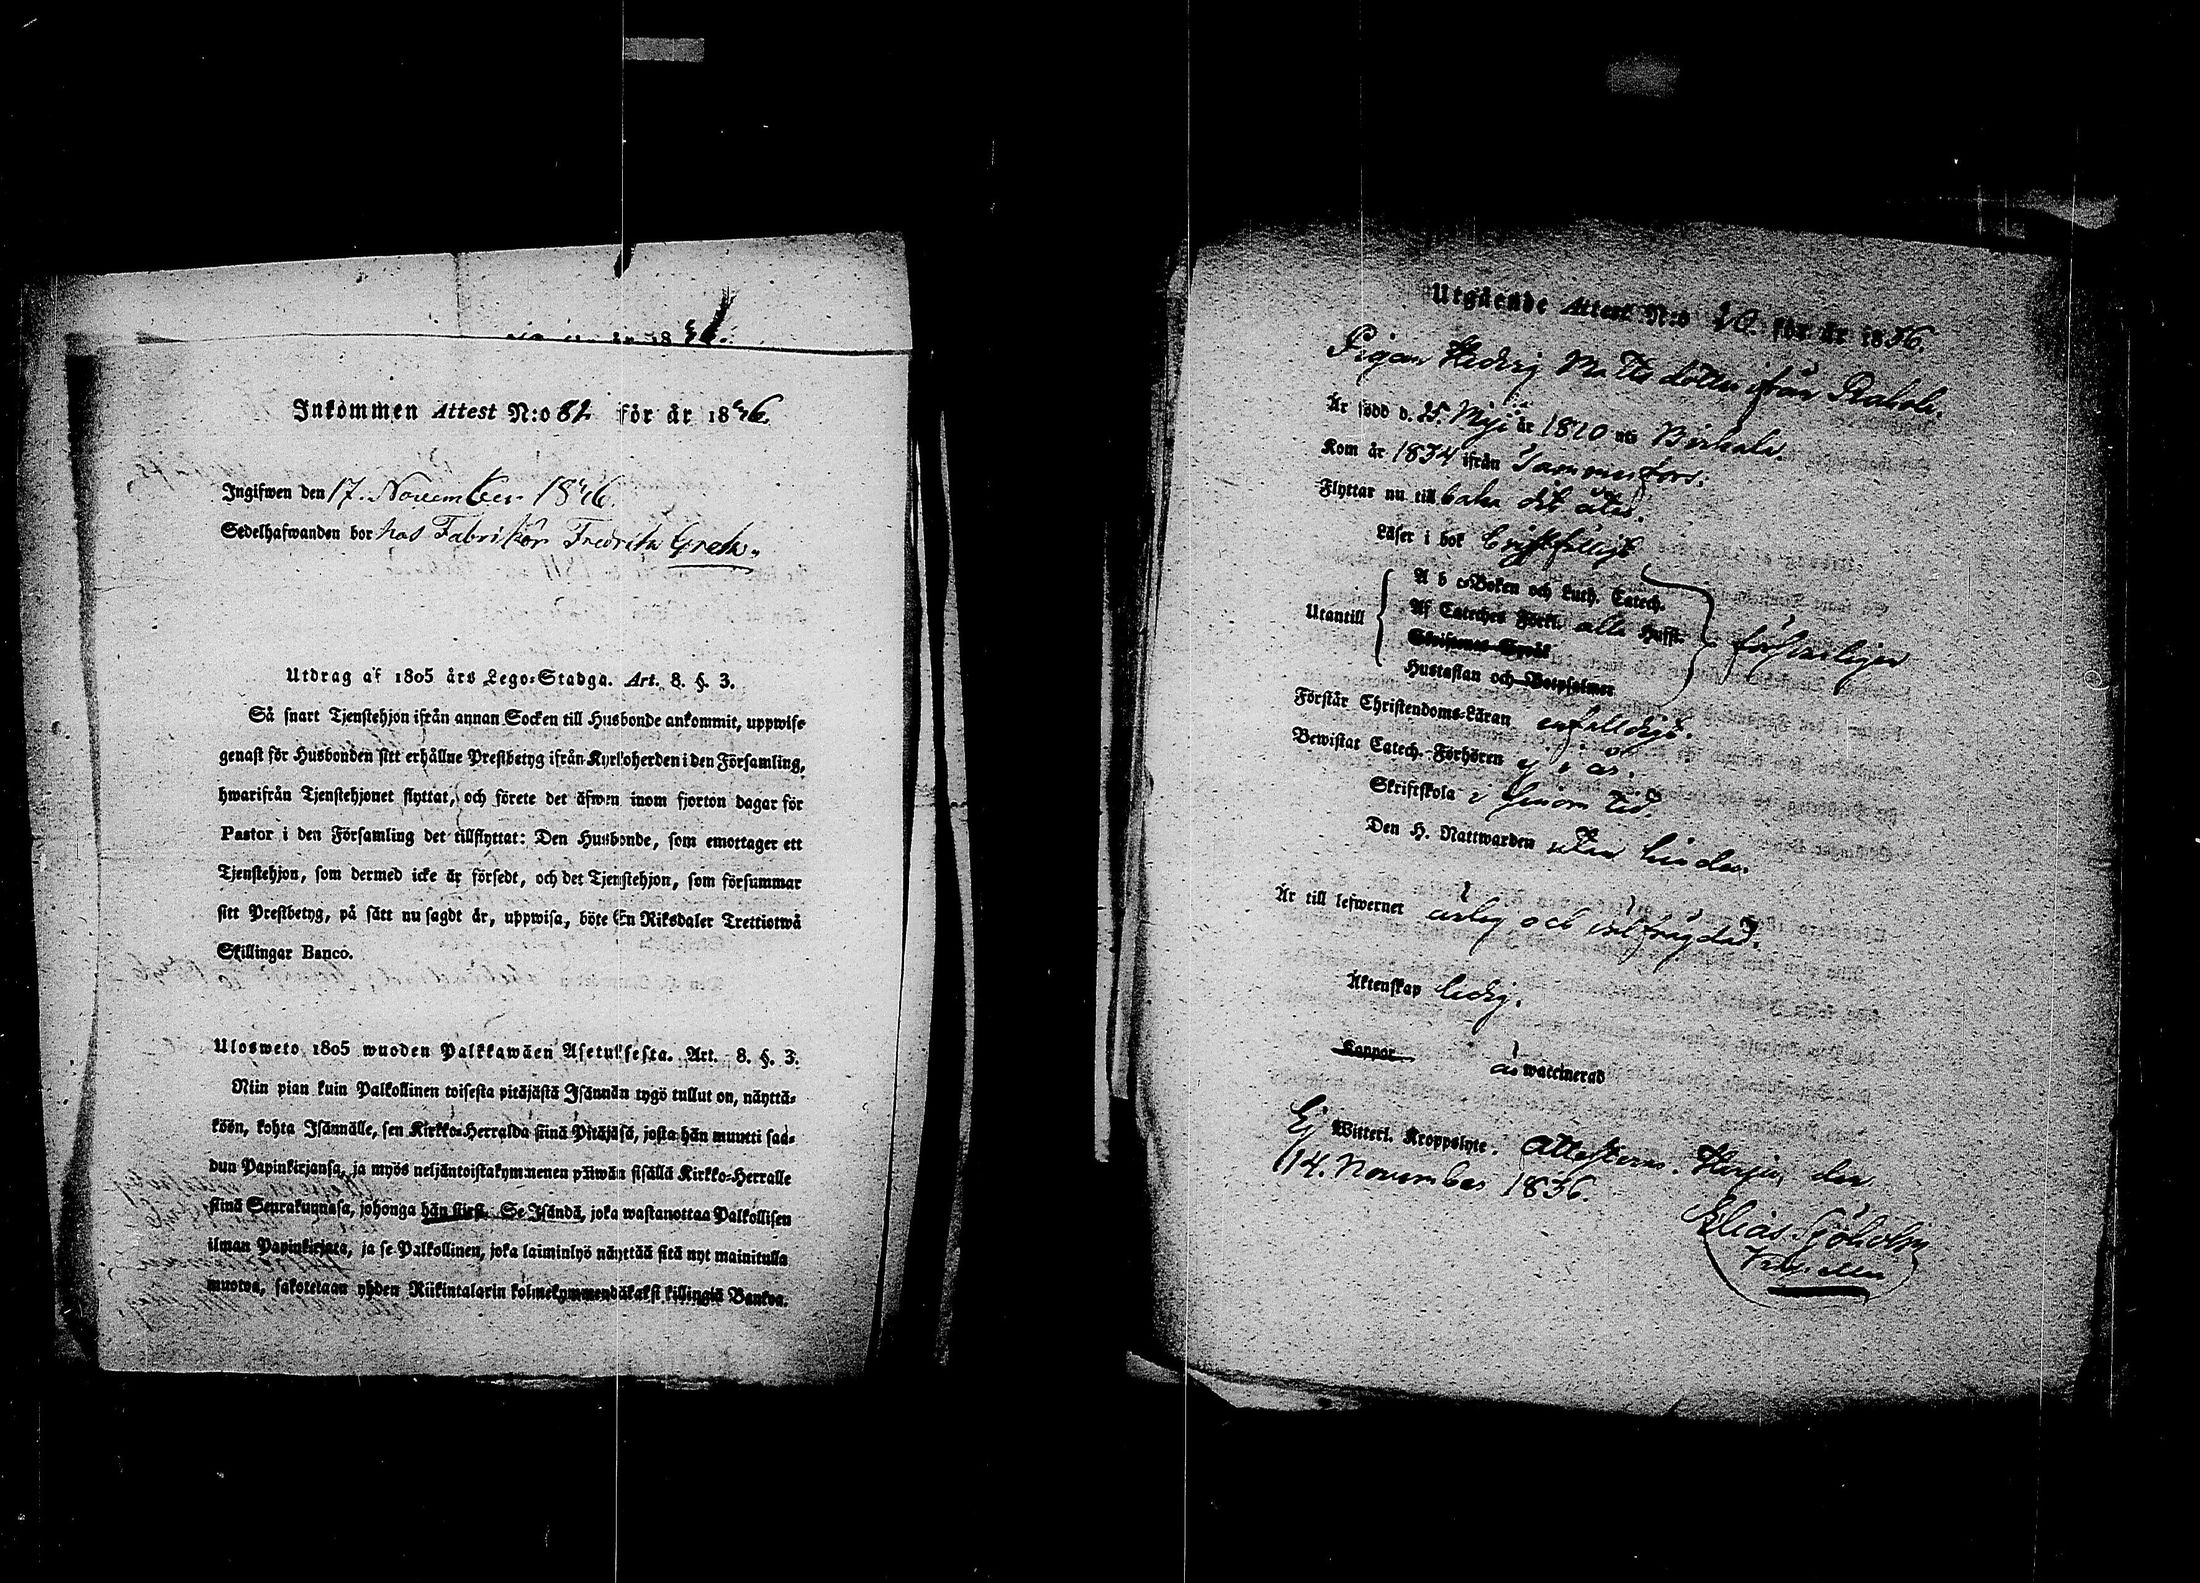 Inkommen Attest N:o 82 för år 1836.
Ingifwen den 17. November 1836.
Sedelhafwanden bor hos Fabrikör Fredrik Greck.
Utdrag af 1805 års Lego-Stadga. Art. 8. §. 3.
Så snart Tjenstehjon ifrån annan Socken till Husbonde ankommit, uppwise
genast för Husbonden sitt erhållne Prestbetyg ifrån Kyrkoherden i den Församling,
hwarifrån Tjenstehjonet flyttat, och förete det äfwen inom fjorton dagar för
Pastor i den Församling det tillflyttat: Den Husbonde, som emottager ett
Tjenstehjon, som dermed icke är försedt, och det Tjenstehjon, som försummar
sitt Prestbetyg, på sätt nu sagdt är, uppwisa, böte En Riksdaler Trettiotwå
Skillingar Banco.
Ulosweto 1805 wuoden Palkkawäen Asetuksesta. Art. 8. §. 3.
Niin pian kuin Palkollinen toisesta pitäjästä Isännän tygö tullut on, näyttä-
köön, kohta Isännälle, sen Kirkko-Herralda siinä Pitäjäsä, josta hän muutti saa-
dun Papinkirjansa, ja myös neljäntoistakymmenen päiwän sisällä Kirkko-Herralle
siinä Seurakunnasa, johonga hän siirsi. Se Isändä, joka wastanottaa Palkollisen
ilman Papinkirjata, ja se Palkollinen, joka laiminlyö näyttää sitä nyt mainitulla
muotoa, sakotetaan yhden Riikintalarin kolmekymmendäkaksi killingiä Bankoa.
Utgående Attest N:o 20. för år 1836.
Pigan Hedvig Matts dotter ifrån
Är född d. 25. Maji år 1810 uti Birkala.
Kom år 1834 ifrån Tammerfors.
Flyttar nu till baka dit åter.
Läser i bok
Utantill
A b c-Boken och Luth. Catech.
Af Cateches Förkl. alla Hufst.
Skriftenes Språk
Hustaflan och Botpsalmer
försvarligen
Förstår Christendoms-Läran enfaldigt.
Bewistat Catech.-Förhören ej i år.
Skriftskola i sinom tid.
Den H. Nattwarden utan hinder.
Är till lefwernet ärlig och välfrägdad.
Äktenskap ledig.
Koppor är waccinerad
Ej Witterl. Kroppslyte. Attesteras. Harju den
14. November 1836.
Elias Sjöholm